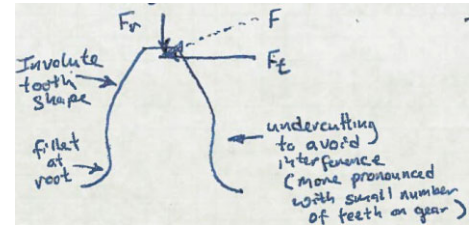 Fr
F
Ft
Involute
tooth
shape
fillet
at
root
undercutting
to avoid
interference
(more pronounced
with small number
of teeth on gear)